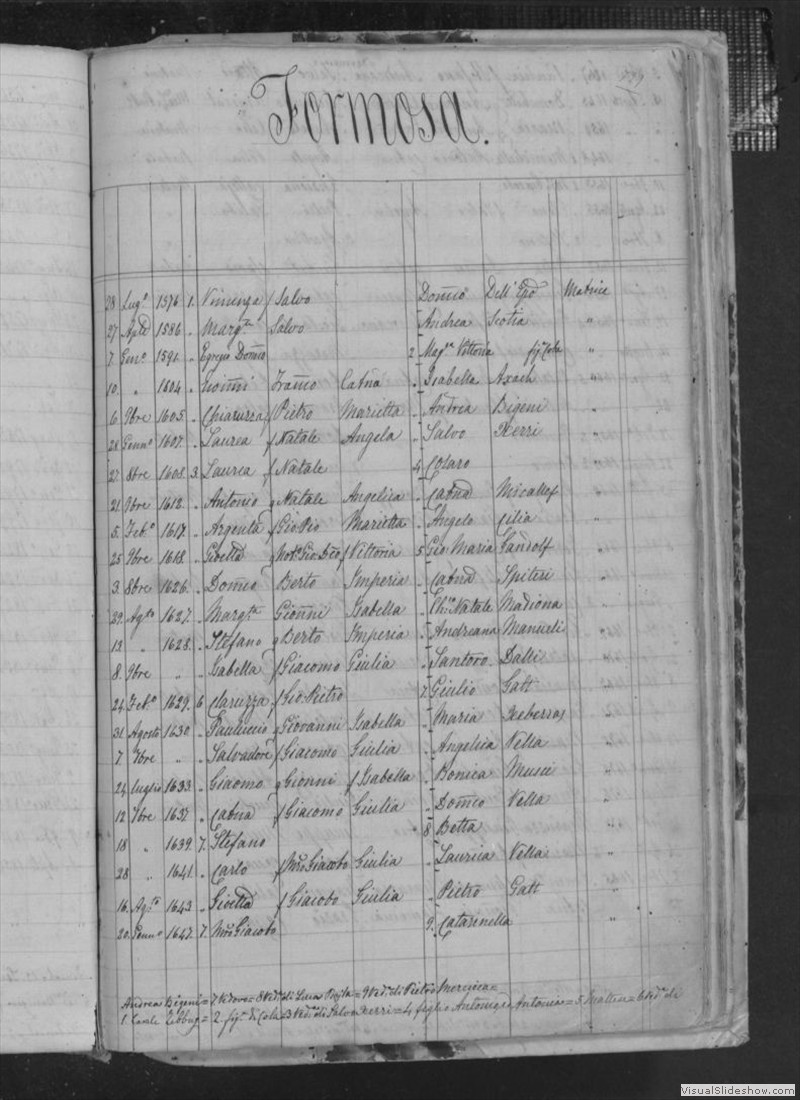 Formosa.
28 Lug.o 1576 1. Vincenza f Salvo Domco Dell' Epo Matrice
27 Aple 1586 " Margta Salvo Andrea Scotia "
7. Genn.o 1591 " Egregio Domco 2 Mag.ca Vittoria fig. Cola "
10. " 1604 " Gioñni Franco Catña " Isabella Axach "
6 9bre 1605 " Chiaruzza f Pietro Marietta " Andrea Bigeni "
28 Genn.o 1607. " Laurea f Natale Angela " Salvo Xerri "
27 8bre 1608. 3. Laurea f Natale 4 Cosaro
21 9bre 1612. " Antonio q Natale Angelica " Catña Micallef "
5. Feb.o 1617. " Argenta f Gio Pio Marietta " Angelo Cilia "
25 9bre 1618. " Not.o Gio Deo f Vittoria 5 Gio Maria Gandolf "
3. 8bre 1626. " Domco Berto Imperia " Catña Spiteri "
29. Ag.to 1627. " Margta Gioñni Isabella " Natale Madiona "
13 " 1628. " Stefano q Berto Imperia " Andreana Manueli "
8. 9bre " " Isabella f Giacomo Giulia " Santoro Dalli "
24 Feb.o 1629. 6 Claruzza f Gio. Pietro 7 Giulio Gatt "
31 Agosto 1630 " Pauluccio q Giovanni Isabella " Maria Xeberras "
7 9bre " " Salvadore f Giacomo Giulia " Angelica Vella "
24 Luglio 1633. " Giaomo q Gionni f Isabella " Bonica Musci "
12 7bre 1637. " Catña f Giacomo Giulia " Domco Vella "
18 " 1639. 7. Stefano 8 Betta
28 " 1641. " Carlo f Mro Giacobo Giulia " Laurica Vella "
16. Ag.to 1643 " f Giacobo Giulia " Pietro Gatt "
20. Genn.o 1647. 7. Mro Giacobo 9. Catarinella "
Andrea Bigeni = 7 Vedovo = 8 Ved.a di Luca = 9 Ved.a di Pietro Mernica =
1. Casale Zebbug = 2. fig.a di Cola = 3 Ved.a di Salvo Xerri = 4 figlio Antonio = 5 = 6 Ved.a di
VisualSlideshow.com